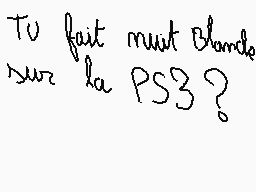 TU fait nuit Blanche
sur la PS3 ?